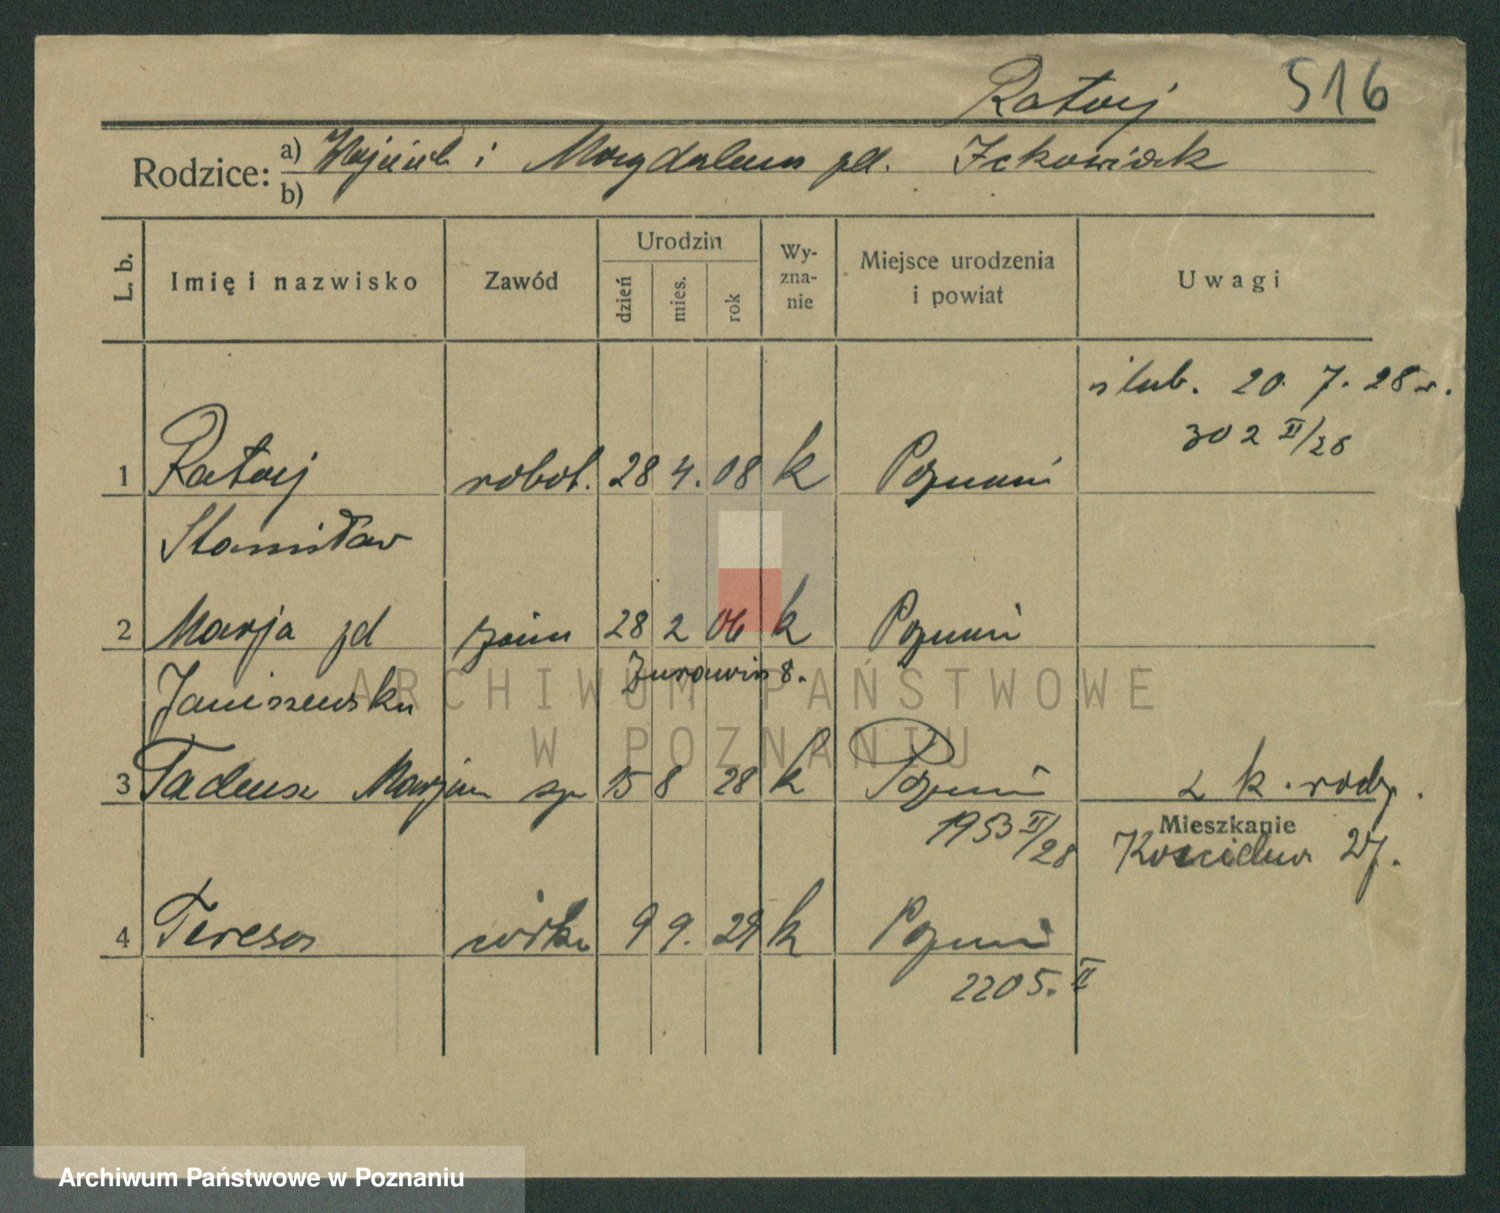 Rataj 516
Rodzice: a) Wojciech i Magdalena zd. Ickowiak
b)
L. b. Imię i nazwisko Zawód Urodzin dzień mies. rok Wyznanie Miejsce urodzenia i powiat Uwagi
ślub. 20. 7. 28 r.
302 II/28
1 Rataj robot. 28 4. 08 k Poznań
Stanisław
2 Marja zd żona 28 2 06 k Poznań
Janiszewska Żurawia 8.
ARCHIWUM PAŃSTWOWE
W POZNANIU
3 Tadeusz Marjan syn 15 8 28 k Poznań z k. rodz.
1953 II/28 Mieszkanie
27.
4 Teresa córka 9 9. 29 k Poznań
2205. II
Archiwum Państwowe w Poznaniu